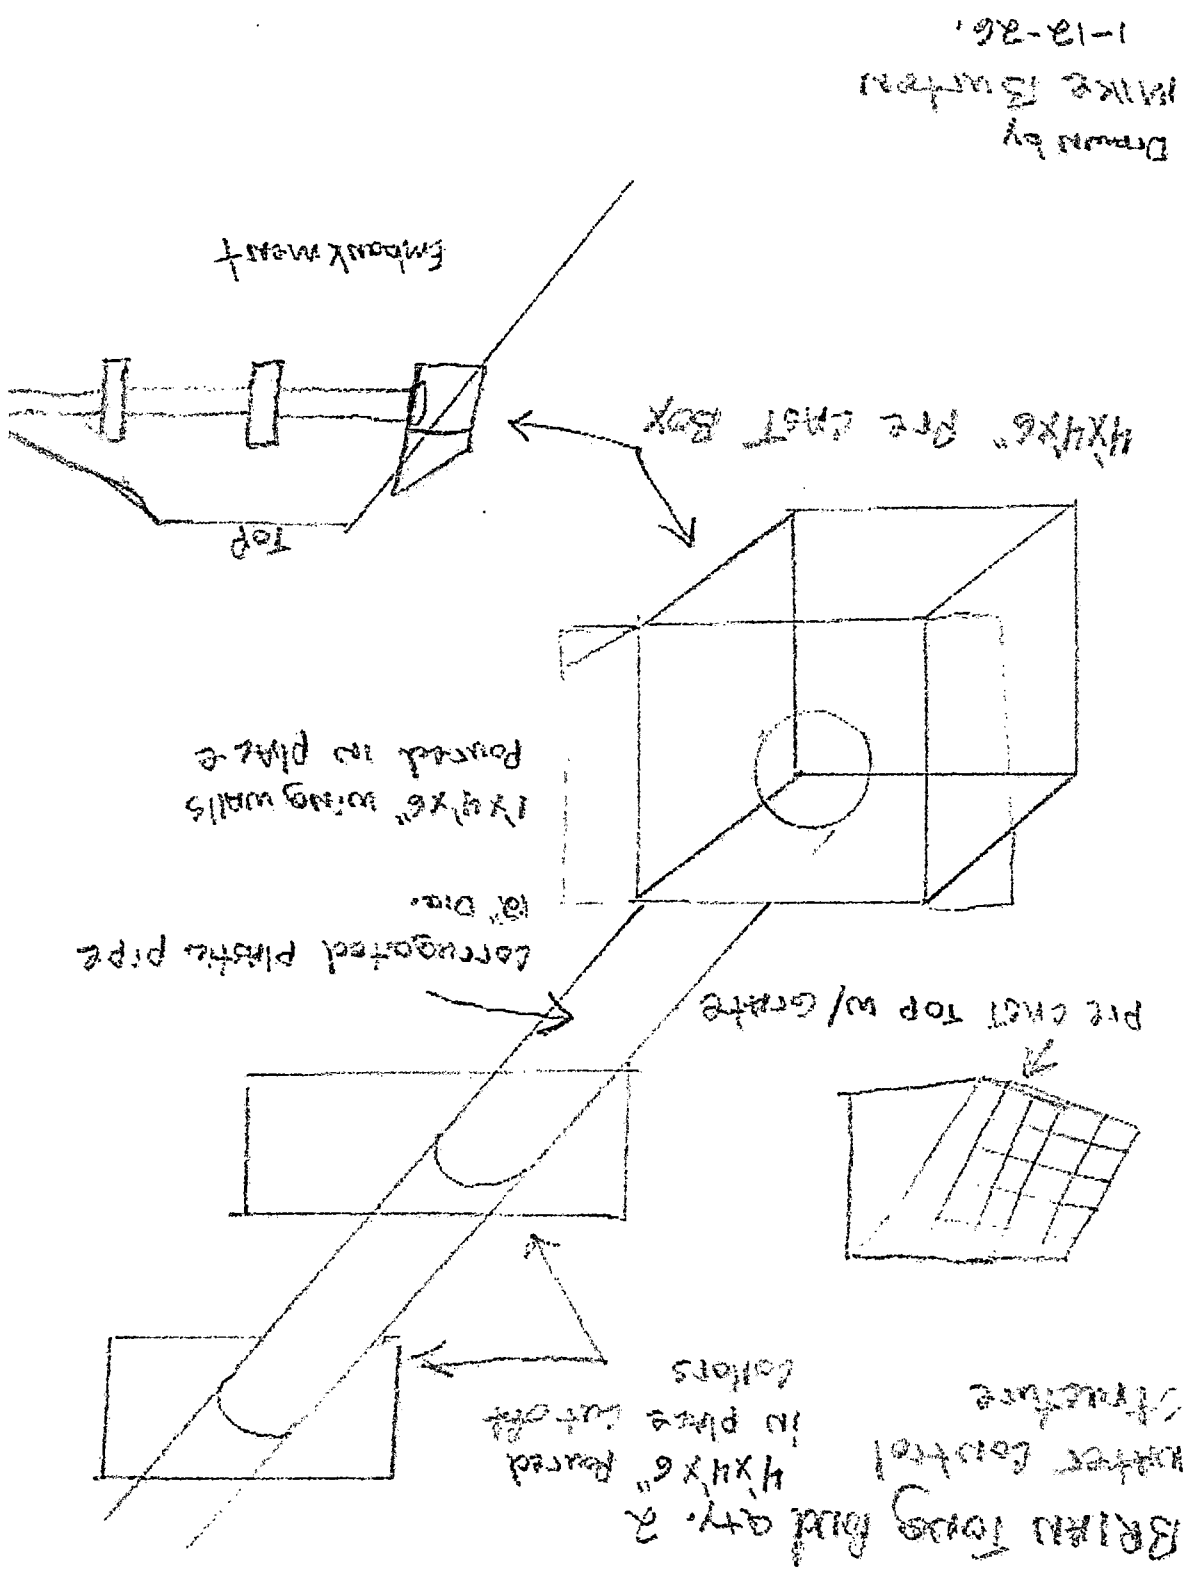 BRIAN Tong Pond Qty. 2
Water Control
Structure
4'x4'x6" Poured
in place cutoff
Collars
Pre cast TOP w/ Grate
Corrugated plastic pipe
12" Dia.
1'x4'x6" wing walls
Poured in place
4'x4'x6" Pre cast Box
TOP
Embankment
Drawn by
Mike Burton
1-12-26.